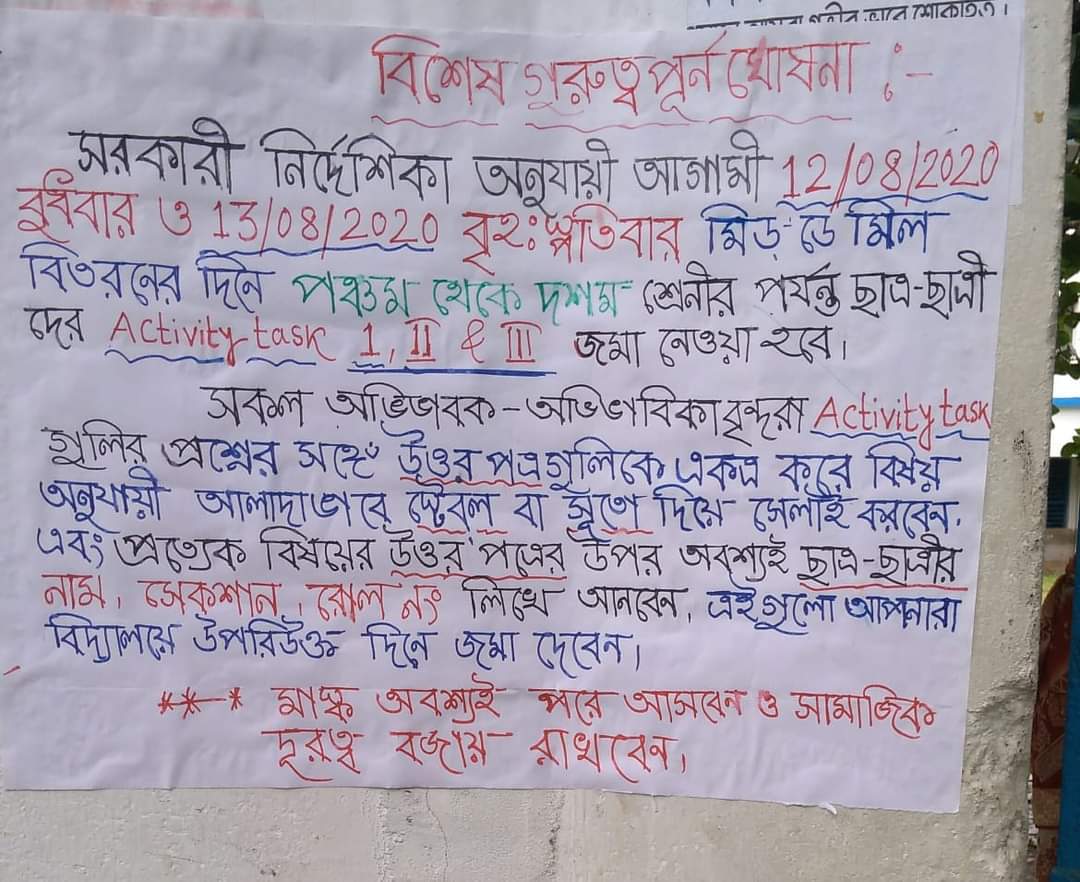 বিশেষ গুরুত্বপূর্ন ঘোষনা :-
সরকারী নির্দেশিকা অনুযায়ী আগামী 12/08/2020
বুধবার ও 13/08/2020 বৃহঃস্পতিবার মিড-ডে মিল
বিতরনের দিনে পঞ্চম থেকে দশম শ্রেনীর পর্যন্ত ছাত্র-ছাত্রী
দের Activity task 1, II & III জমা নেওয়া হবে।
সকল অভিভাবক-অভিভাবিকাবৃন্দরা Activity task
গুলির প্রশ্নের সঙ্গে উত্তর পত্রগুলিকে একত্র করে বিষয়
অনুযায়ী আলাদাভাবে স্টেবল বা সুতো দিয়ে সেলাই করবেন.
এবং প্রত্যেক বিষয়ের উত্তর পত্রের উপর অবশ্যই ছাত্র-ছাত্রীর
নাম, সেকশান, রোল নং লিখে আনবেন, এইগুলো আপনারা
বিদ্যালয়ে উপরিউক্ত দিনে জমা দেবেন।
*** মাস্ক অবশ্যই পরে আসবেন ও সামাজিক
দূরত্ব বজায় রাখবেন।